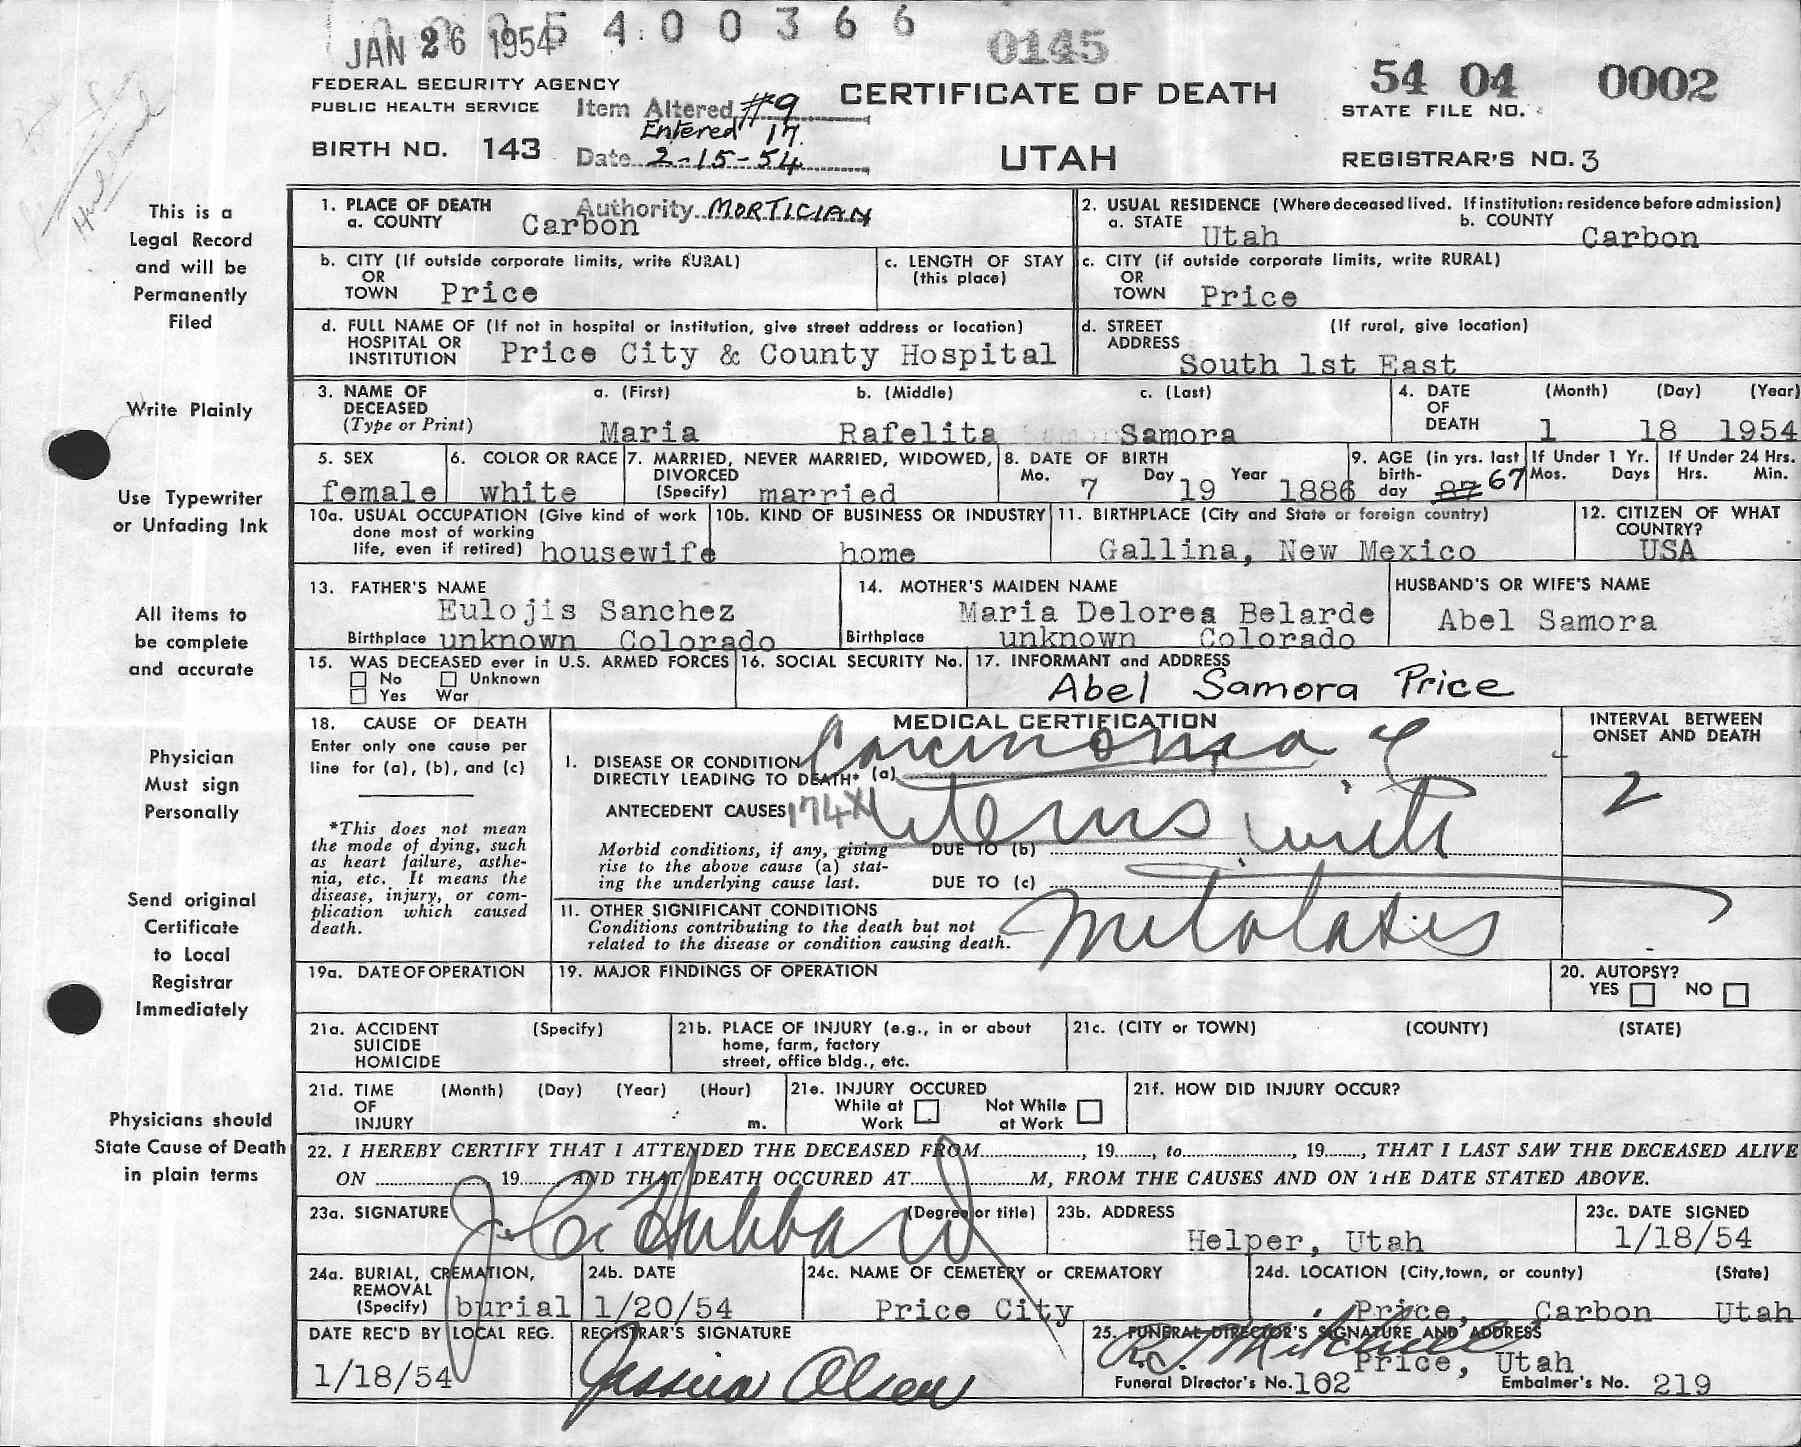 JAN 26 1954 5 4 0 0 3 6 6
0145
FEDERAL SECURITY AGENCY
PUBLIC HEALTH SERVICE
Item Altered #9
Entered 17
Date 2-15-54
Authority MORTICIAN
BIRTH NO. 143
CERTIFICATE OF DEATH
UTAH
54 04 0002
STATE FILE NO.
REGISTRAR'S NO. 3
This is a
Legal Record
and will be
Permanently
Filed
Write Plainly
Use Typewriter
or Unfading Ink
All items to
be complete
and accurate
Physician
Must sign
Personally
Send original
Certificate
to Local
Registrar
Immediately
Physicians should
State Cause of Death
in plain terms
1. PLACE OF DEATH
a. COUNTY Carbon
2. USUAL RESIDENCE (Where deceased lived. If institution: residence before admission)
a. STATE Utah b. COUNTY Carbon
b. CITY (If outside corporate limits, write RURAL)
OR
TOWN Price
c. LENGTH OF STAY
(this place)
c. CITY (if outside corporate limits, write RURAL)
OR
TOWN Price
d. FULL NAME OF (If not in hospital or institution, give street address or location)
HOSPITAL OR
INSTITUTION Price City & County Hospital
d. STREET (If rural, give location)
ADDRESS
South 1st East
3. NAME OF DECEASED (Type or Print)
a. (First) b. (Middle) c. (Last)
Maria Rafelita Samora
4. DATE OF DEATH (Month) (Day) (Year)
1 18 1954
5. SEX
female
6. COLOR OR RACE
white
7. MARRIED, NEVER MARRIED, WIDOWED,
DIVORCED
(Specify) married
8. DATE OF BIRTH
Mo. 7 Day 19 Year 1886
9. AGE (in yrs. last
birth-
day 87 67
If Under 1 Yr.
Mos. Days
If Under 24 Hrs.
Hrs. Min.
10a. USUAL OCCUPATION (Give kind of work
done most of working
life, even if retired) housewife
10b. KIND OF BUSINESS OR INDUSTRY
home
11. BIRTHPLACE (City and State or foreign country)
Gallina, New Mexico
12. CITIZEN OF WHAT
COUNTRY?
USA
13. FATHER'S NAME
Eulojis Sanchez
Birthplace unknown Colorado
14. MOTHER'S MAIDEN NAME
Maria Delorea Belarde
Birthplace unknown Colorado
HUSBAND'S OR WIFE'S NAME
Abel Samora
15. WAS DECEASED ever in U.S. ARMED FORCES
No Unknown
Yes War
16. SOCIAL SECURITY No.
17. INFORMANT and ADDRESS
Abel Samora Price
18. CAUSE OF DEATH
Enter only one cause per
line for (a), (b), and (c)
*This does not mean
the mode of dying, such
as heart failure, asthe-
nia, etc. It means the
disease, injury, or com-
plication which caused
death.
MEDICAL CERTIFICATION
I. DISEASE OR CONDITION
DIRECTLY LEADING TO DEATH* (a) Carcinoma of
ANTECEDENT CAUSES 174X uterus with
Morbid conditions, if any, giving
rise to the above cause (a) stat-
ing the underlying cause last.
DUE TO (b)
DUE TO (c)
II. OTHER SIGNIFICANT CONDITIONS
Conditions contributing to the death but not
related to the disease or condition causing death.
INTERVAL BETWEEN
ONSET AND DEATH
2
19a. DATE OF OPERATION
19. MAJOR FINDINGS OF OPERATION
20. AUTOPSY?
YES NO
21a. ACCIDENT (Specify)
SUICIDE
HOMICIDE
21b. PLACE OF INJURY (e.g., in or about
home, farm, factory
street, office bldg., etc.
21c. (CITY or TOWN) (COUNTY) (STATE)
21d. TIME (Month) (Day) (Year) (Hour)
OF
INJURY m.
21e. INJURY OCCURED
While at Work Not While at Work
21f. HOW DID INJURY OCCUR?
22. I HEREBY CERTIFY THAT I ATTENDED THE DECEASED FROM, 19, to, 19, THAT I LAST SAW THE DECEASED ALIVE
ON 19 AND THAT DEATH OCCURED AT M, FROM THE CAUSES AND ON THE DATE STATED ABOVE.
23a. SIGNATURE (Degree or title)
Hubbard
23b. ADDRESS
Helper, Utah
23c. DATE SIGNED
1/18/54
24a. BURIAL, CREMATION,
REMOVAL
(Specify) burial
24b. DATE
1/20/54
24c. NAME OF CEMETERY or CREMATORY
Price City
24d. LOCATION (City, town, or county) (State)
Price, Carbon Utah
DATE REC'D BY LOCAL REG.
1/18/54
REGISTRAR'S SIGNATURE
Jessica Olsen
25. FUNERAL DIRECTOR'S SIGNATURE AND ADDRESS
Mitchell
Price, Utah
Funeral Director's No. 102 Embalmer's No. 219